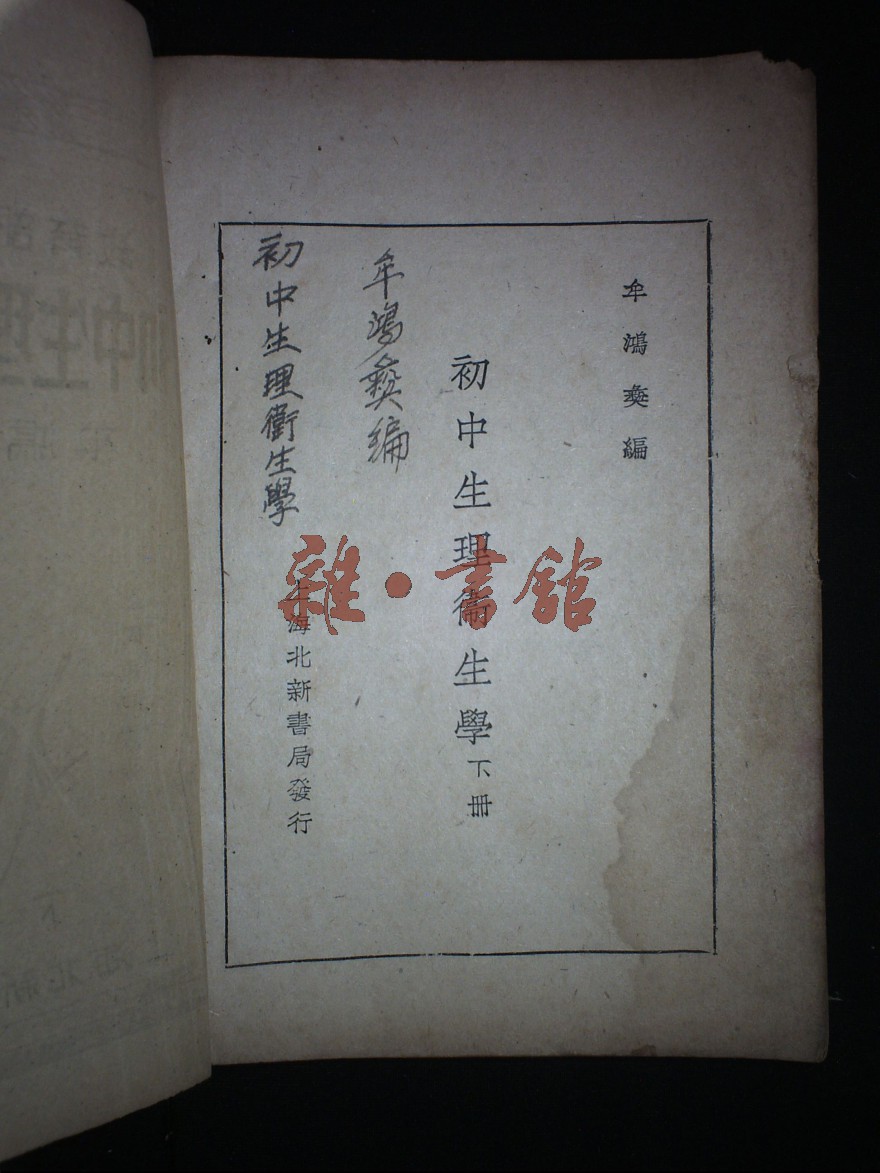 牟鴻彝編
初中生理衛生學下冊
牟鴻彝編
初中生理衛生學
上海北新書局發行
雜·書館